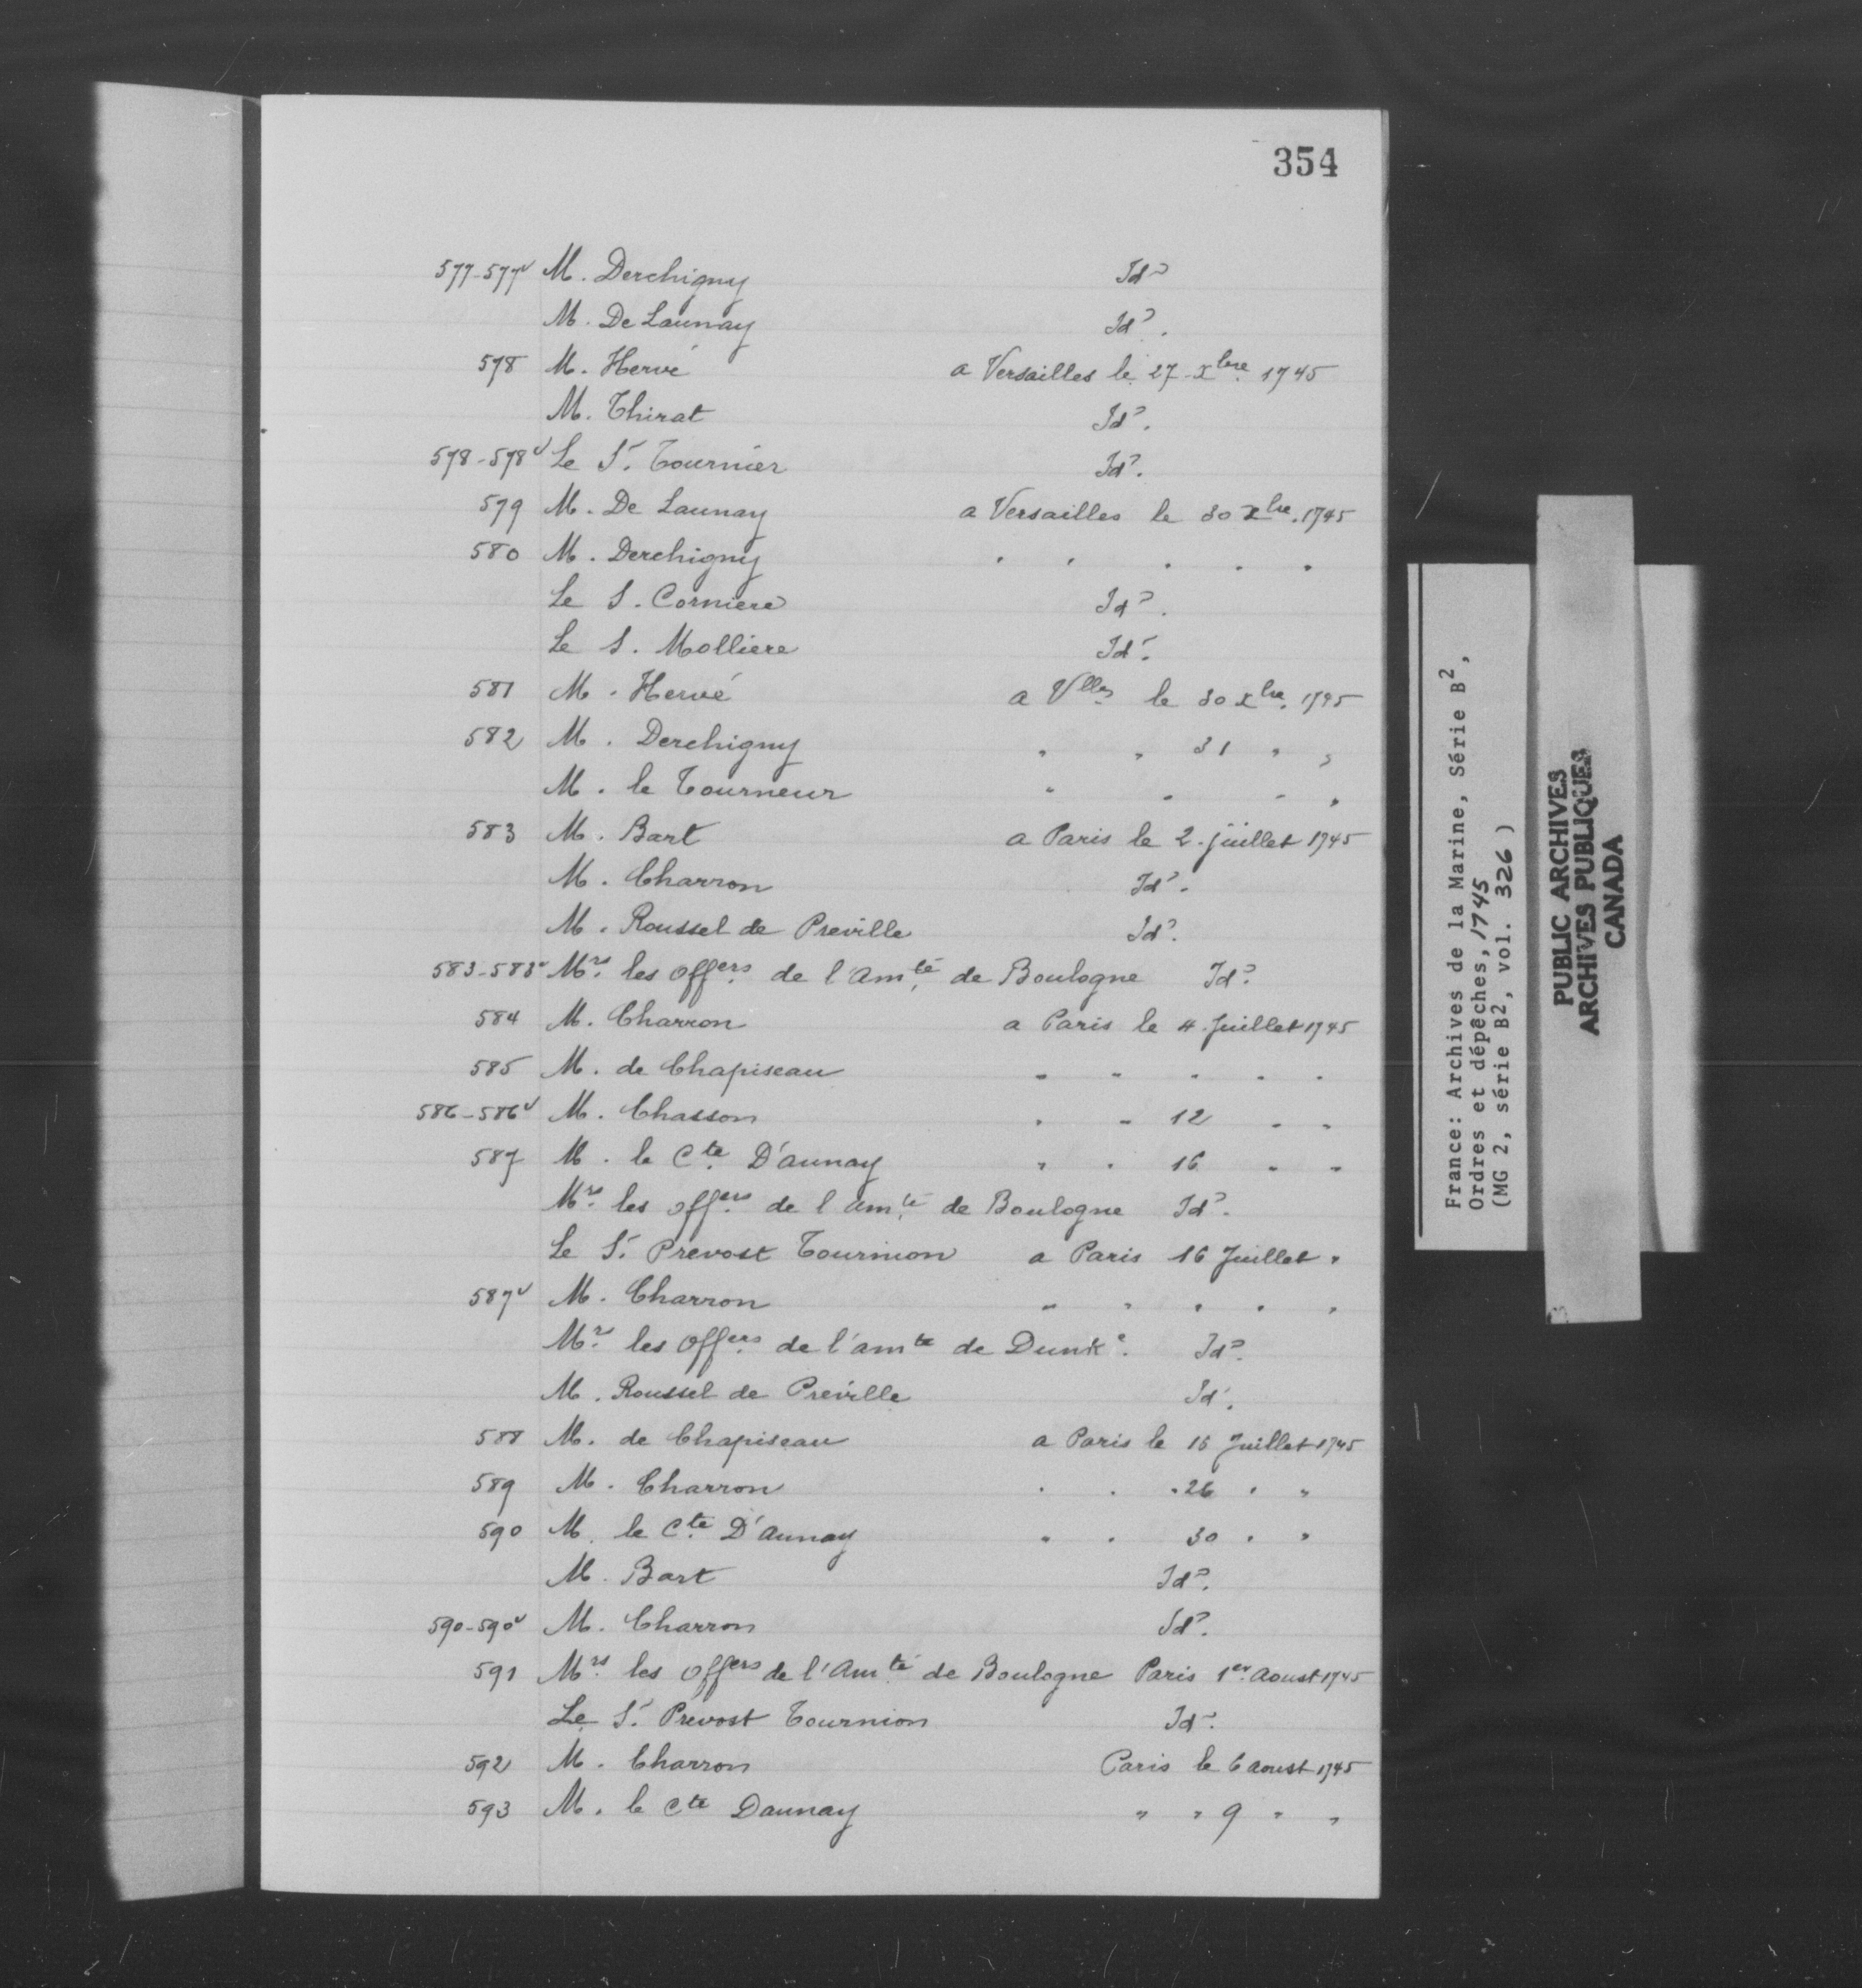 354
577-577v M. Derchigny Ido
M. De Launay Ido.
578 M. Hervé a Versailles le 27 Xbre 1745
M. Thirat Ido.
578-578v Le Sr. Tournier Ido.
579 M. De Launay a Versailles le 30 Xbre. 1745
580 M. Derchigny " " " " "
Le S. Corniere Ido.
Le S. Molliere Ido.
581 M. Hervé a Vlles le 30 Xbre. 1745
582 M. Derchigny " " 31 " "
M. le Tourneur " " " "
583 M. Bart a Paris le 2. juillet 1745
M. Charron Ido.
M. Roussel de Preville Ido.
583-583v Mrs. les offers. de l'amté de Boulogne Ido.
584 M. Charron a Paris le 4. Juillet 1745
585 M. de Chapiseau " " " " "
586-586v M. Chasson " " 12 " "
587 M. le Cte. D'aunay " " 16 " "
Mrs. les offers. de l'amté de Boulogne Ido.
Le Sr. Prevost Tournion a Paris 16 Juillet "
587v M. Charron " " " " "
Mrs. les offers. de l'amte de Dunke. Ido.
M. Roussel de Préville Ido.
588 M. de Chapiseau a Paris le 15 Juillet 1745
589 M. Charron " " " 26 " "
590 M. le Cte. D'aunay " " 30 " "
M. Bart Ido.
590-590v M. Charron Ido.
591 Mrs. les offers de l'Amté de Boulogne Paris 1er. Aoust 1745
Le Sr. Prevost Tournion Ido.
592 M. Charron Paris le 6 aoust 1745
593 M. le Cte Daunay " " 9 " "
France: Archives de la Marine, Série B2,
Ordres et dépêches, 1745
(MG 2, série B2, vol. 326)
PUBLIC ARCHIVES
ARCHIVES PUBLIQUES
CANADA